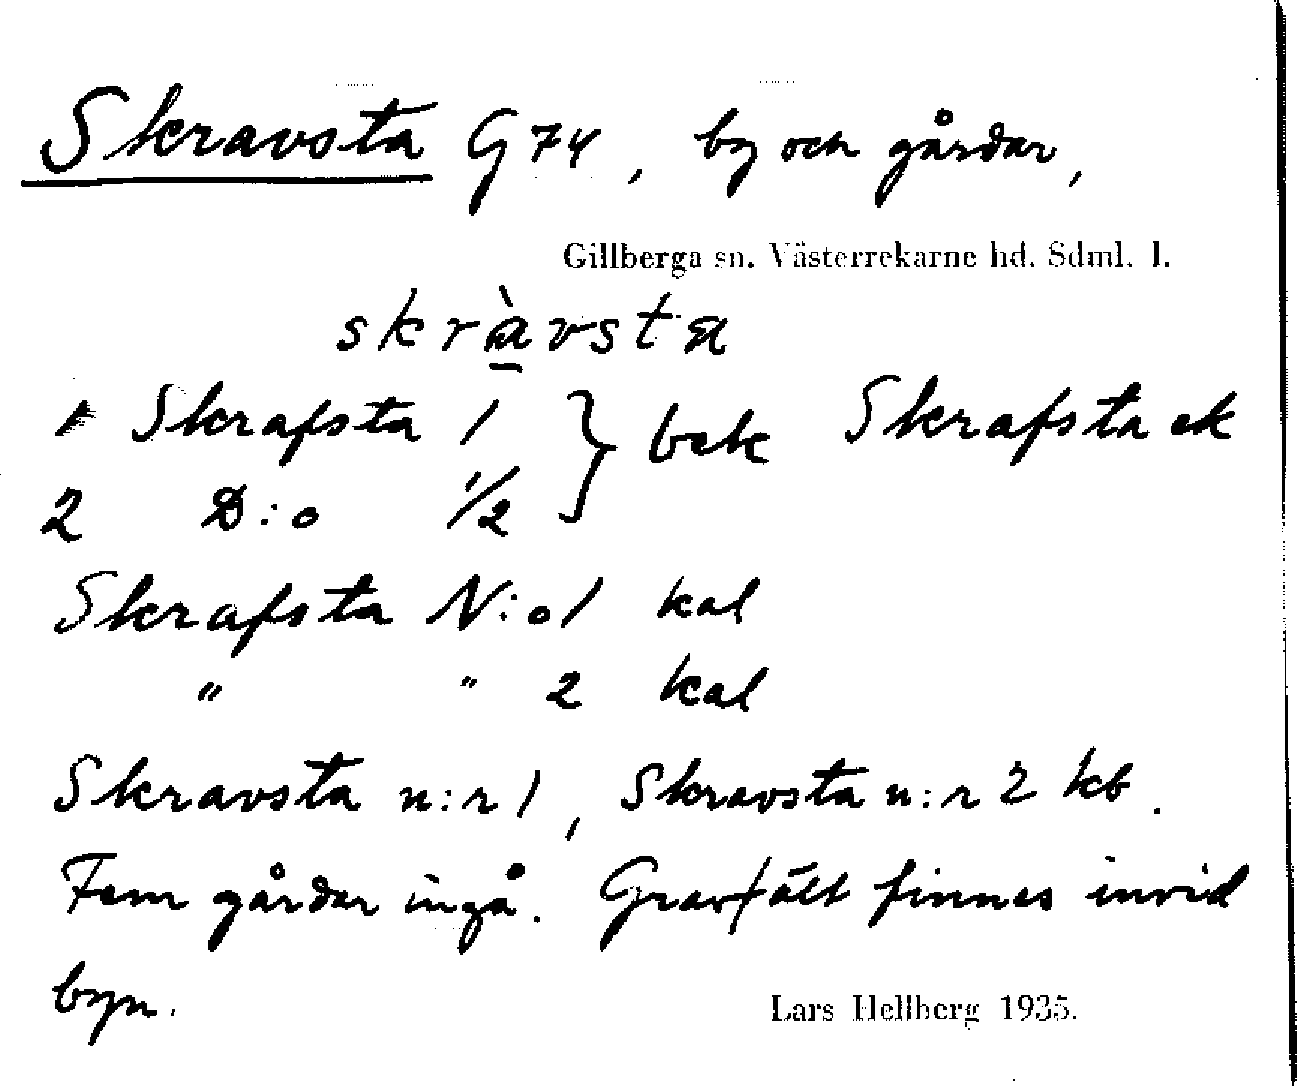 Skravsta G 74, by och gårdar,
Gillberga sn. Västerrekarne hd. Sdml. l.
skràvsta
1 Skrafsta 1 } bek Skrafsta ek
2 D:o 1/2
Skrafsta N:o 1 kal
" " 2 kal
Skravsta n:r 1, Skravsta n:r 2 kb.
Fem gårdar ingå. Gravfält finnes invid
byn.
Lars Hellberg 1935.